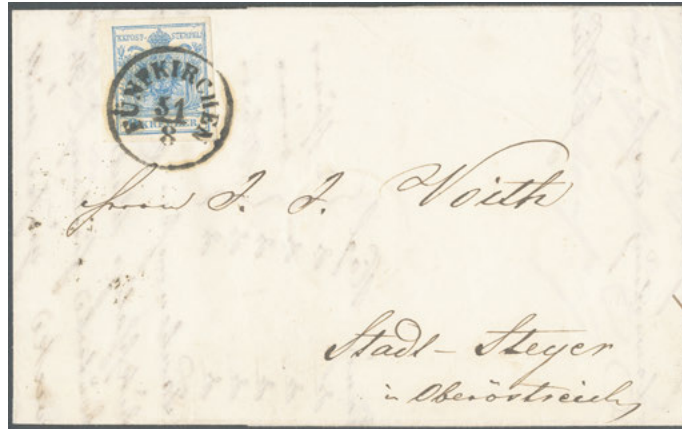 KK POST-STEMPEL
FÜNFKIRCHEN
31
8
Herrn J. J. Voith
Stadt-Steyer
in Oberöstreich